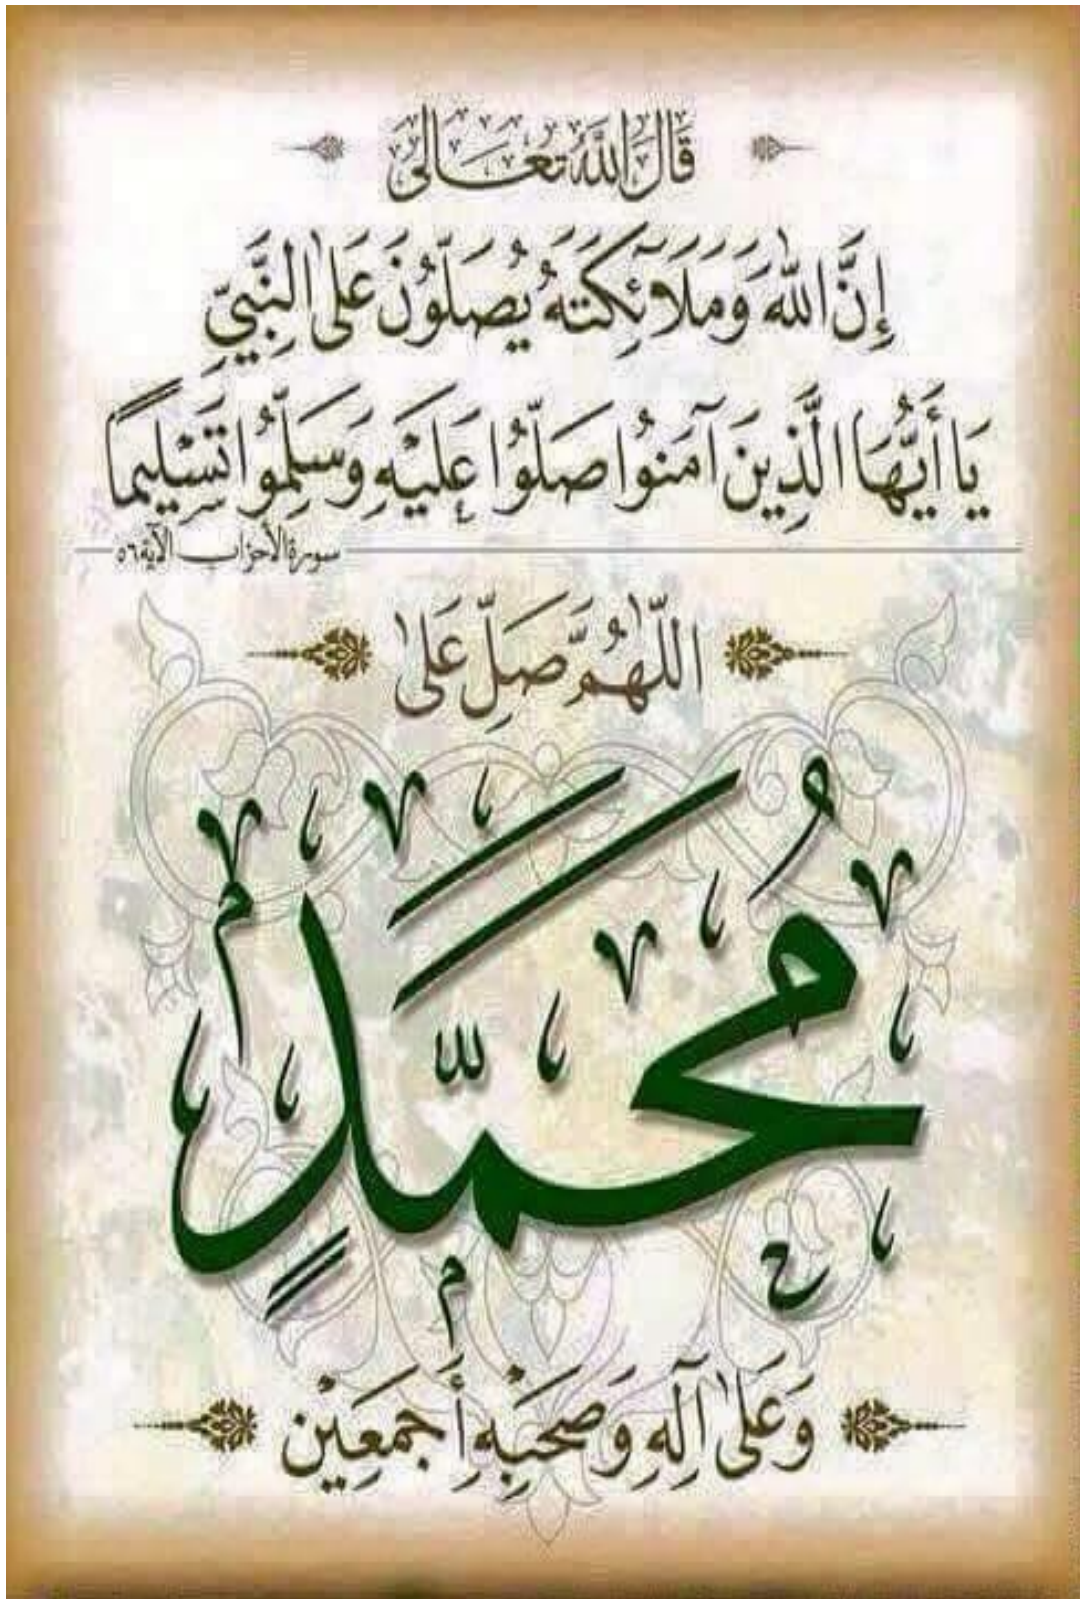 قَالَ اللَّهُ تَعَالَى
إِنَّ اللهَ وَمَلَائِكَتَهُ يُصَلُّونَ عَلَى النَّبِيِّ
يَا أَيُّهَا الَّذِينَ آمَنُوا صَلُّوا عَلَيْهِ وَسَلِّمُوا تَسْلِيمًا
سورة الأحزاب الآية ٥٦
اللَّهُمَّ صَلِّ عَلَى
مُحَمَّدٍ
وَعَلَى آلِهِ وَصَحْبِهِ أَجْمَعِيْن